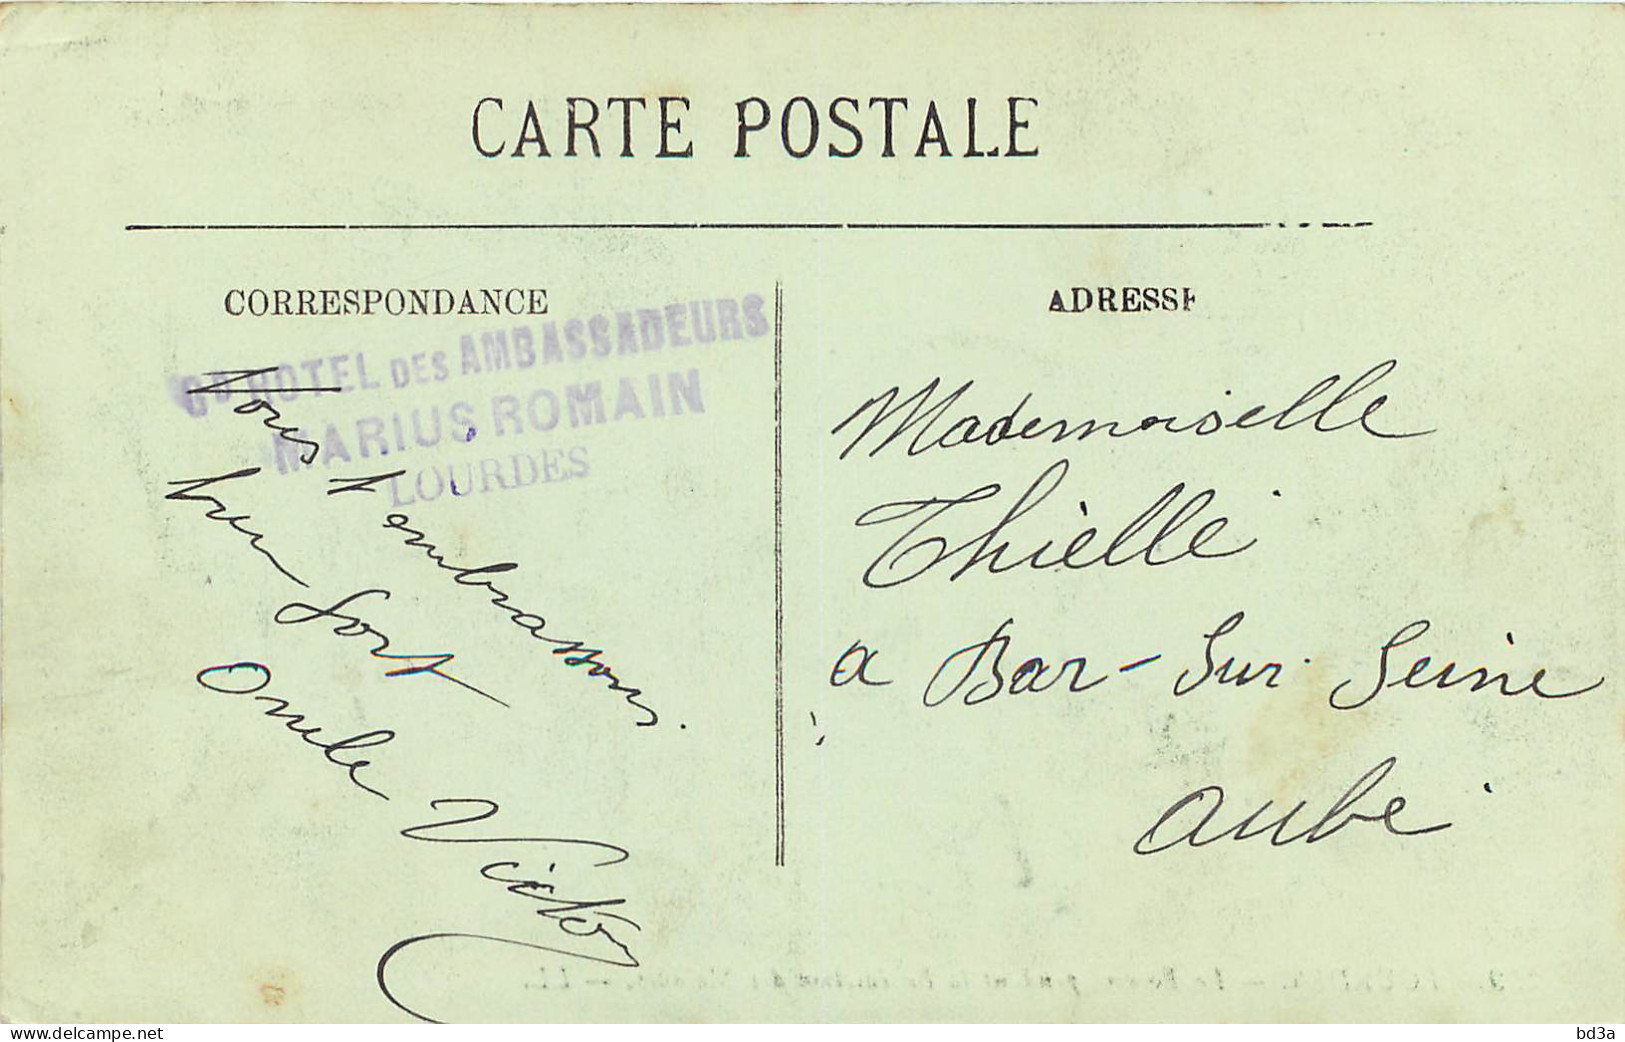 CARTE POSTALE
CORRESPONDANCE
ADRESSE
GD HOTEL DES AMBASSADEURS
MARIUS ROMAIN
LOURDES
Tous t'embrassons
bien fort
Oncle Victor
Mademoiselle
Thielle
a Bar-Sur-Seine
Aube
delcampe.net
bd3a